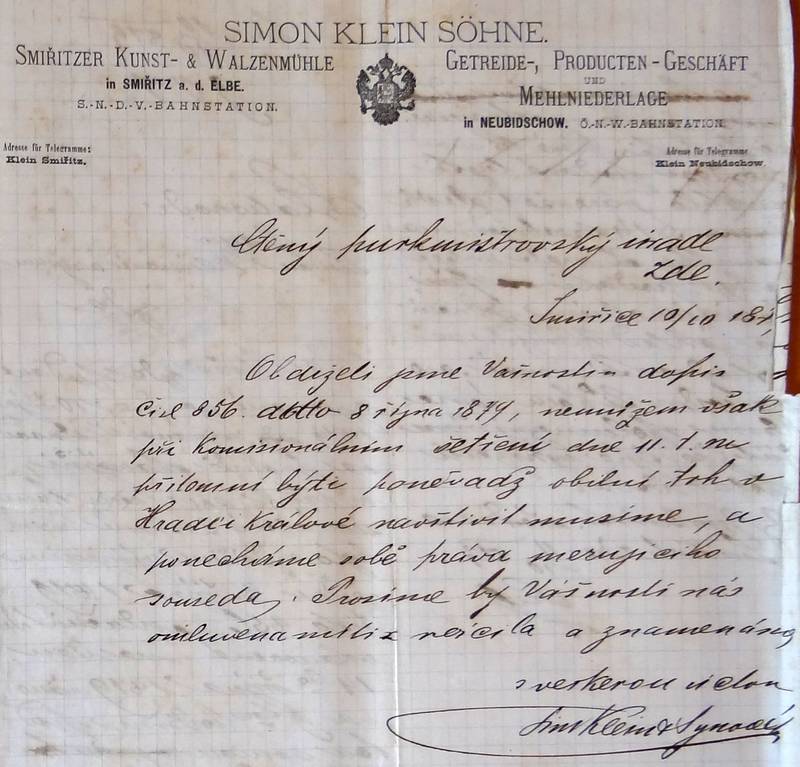 SIMON KLEIN SÖHNE.
SMIŘITZER KUNST- & WALZENMÜHLE
in SMIŘITZ a. d. ELBE.
S.-N.-D.-V.-BAHNSTATION.
GETREIDE-, PRODUCTEN-GESCHÄFT
UND
MEHLNIEDERLAGE
in NEUBIDSCHOW. Ö.-N.-W.-BAHNSTATION.
Adresse für Telegramme:
Klein Smiřitz.
Adresse für Telegramme
Klein Neubidschow.
Ctěný purkmistrovský úřade
Zde.
Smiřice 10/10 187
Obdrželi jsme Vašnostin dopis
čís 856. dtto 8 října 1879, nemůžem však
při komisionálním šetření dne 11. t. m
přítomní býti poněvadž obilní trh v
Hradci Králové navštívit musíme, a
ponecháme sobě práva
souseda. Prosíme by Vašnosti nás
a znamenáme
s veškerou úctou
Sim Klein & Synové